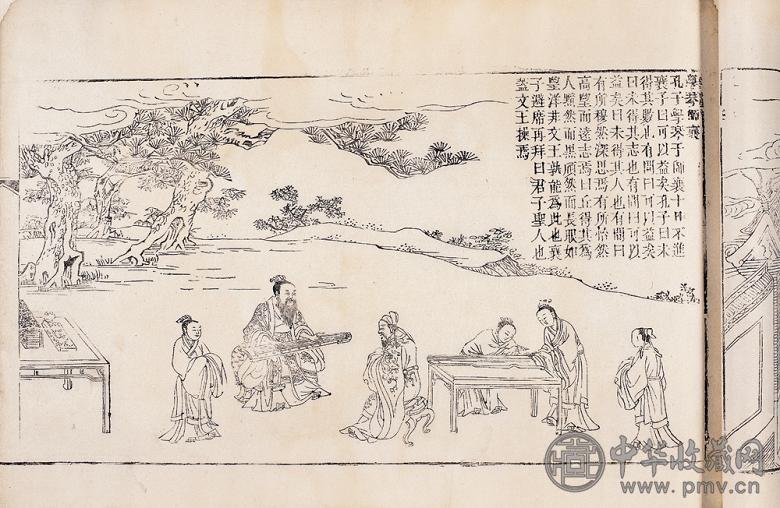 學琴師襄
孔子學琴于師襄十日不進
襄子曰可以益矣孔子曰未
得其數也有間曰可以益矣
曰未得其志也有間曰可以
益矣曰未得其人也有間曰
有所穆然深思焉有所怡然
高望而遠志焉曰丘得其為
人黯然而黑頎然而長眼如
望洋非文王孰能為此也襄
子避席再拜曰君子聖人也
蓋文王操焉
中华收藏网
www.pmv.cn